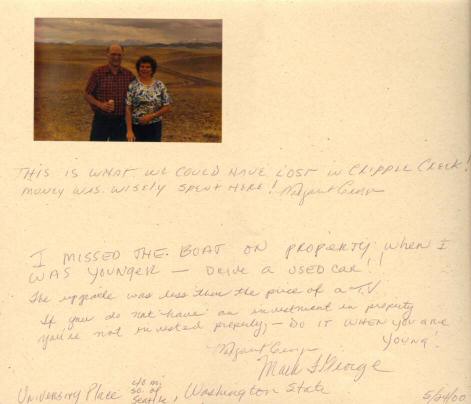 THIS IS WHAT WE COULD HAVE LOST IN CRIPPLE CREEK!
MONEY WAS WISELY SPENT HERE! Margaret George
I MISSED THE BOAT ON PROPERTY WHEN I
WAS YOUNGER — DRIVE A USED CAR!!
The upgrade was less then the price of a T.V.
If you do not have an investment in property
you're not invested property, — DO IT WHEN YOU ARE
YOUNG!
Margaret George
Mark George
UNIVERSITY PLACE 40 mi. so. of Seattle, Washington State
5/24/00